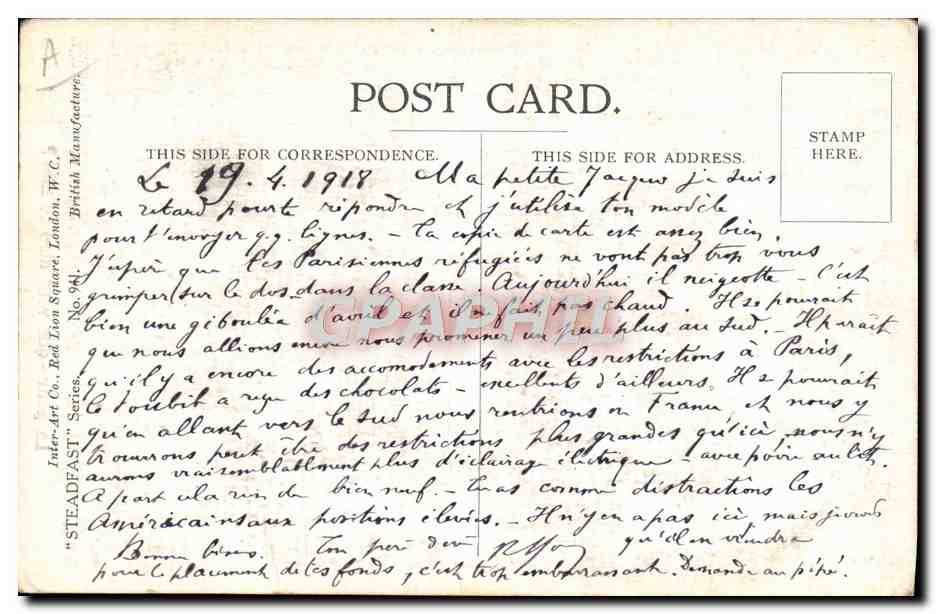 A
POST CARD.
THIS SIDE FOR CORRESPONDENCE.
THIS SIDE FOR ADDRESS.
STAMP
HERE.
Inter-Art Co., Red Lion Square, London, W.C.
"STEADFAST" Series. No. 941. British Manufacture.
CPAPHIL
Le 19.4.1918 Ma petite je suis
en retard pour te répondre et j'utilise ton modèle
pour t'envoyer q.q. lignes. – ta copie de carte est assez bien.
J'espère que les Parisiennes réfugiées ne vont pas trop vous
grimper (sur le dos) dans la classe. Aujourd'hui il neigeotte – C'est
bien une giboulée d'avril et il ne fait pas chaud. Il se pourrait
que nous allions encore nous promener un peu plus au Sud. – Il paraît
qu'il y a encore des accomodements avec les restrictions à Paris,
le Toubib a reçu des chocolats – excellents d'ailleurs. Il se pourrait
qu'en allant vers le sud nous rentrions en France et nous y
trouverons peut être des restrictions plus grandes qu'ici, nous n'y
aurons vraisemblablement plus d'éclairage électrique – avec poire au lit.
A part cela rien de bien neuf. – Tu as comme distractions les
Américains aux positions élevées. – Il n'y en a pas ici, mais
qu'il en viendra
Bonnes bises. Ton père
pour le placement de tes fonds, c'est trop embarrassant. Demande au pépé.